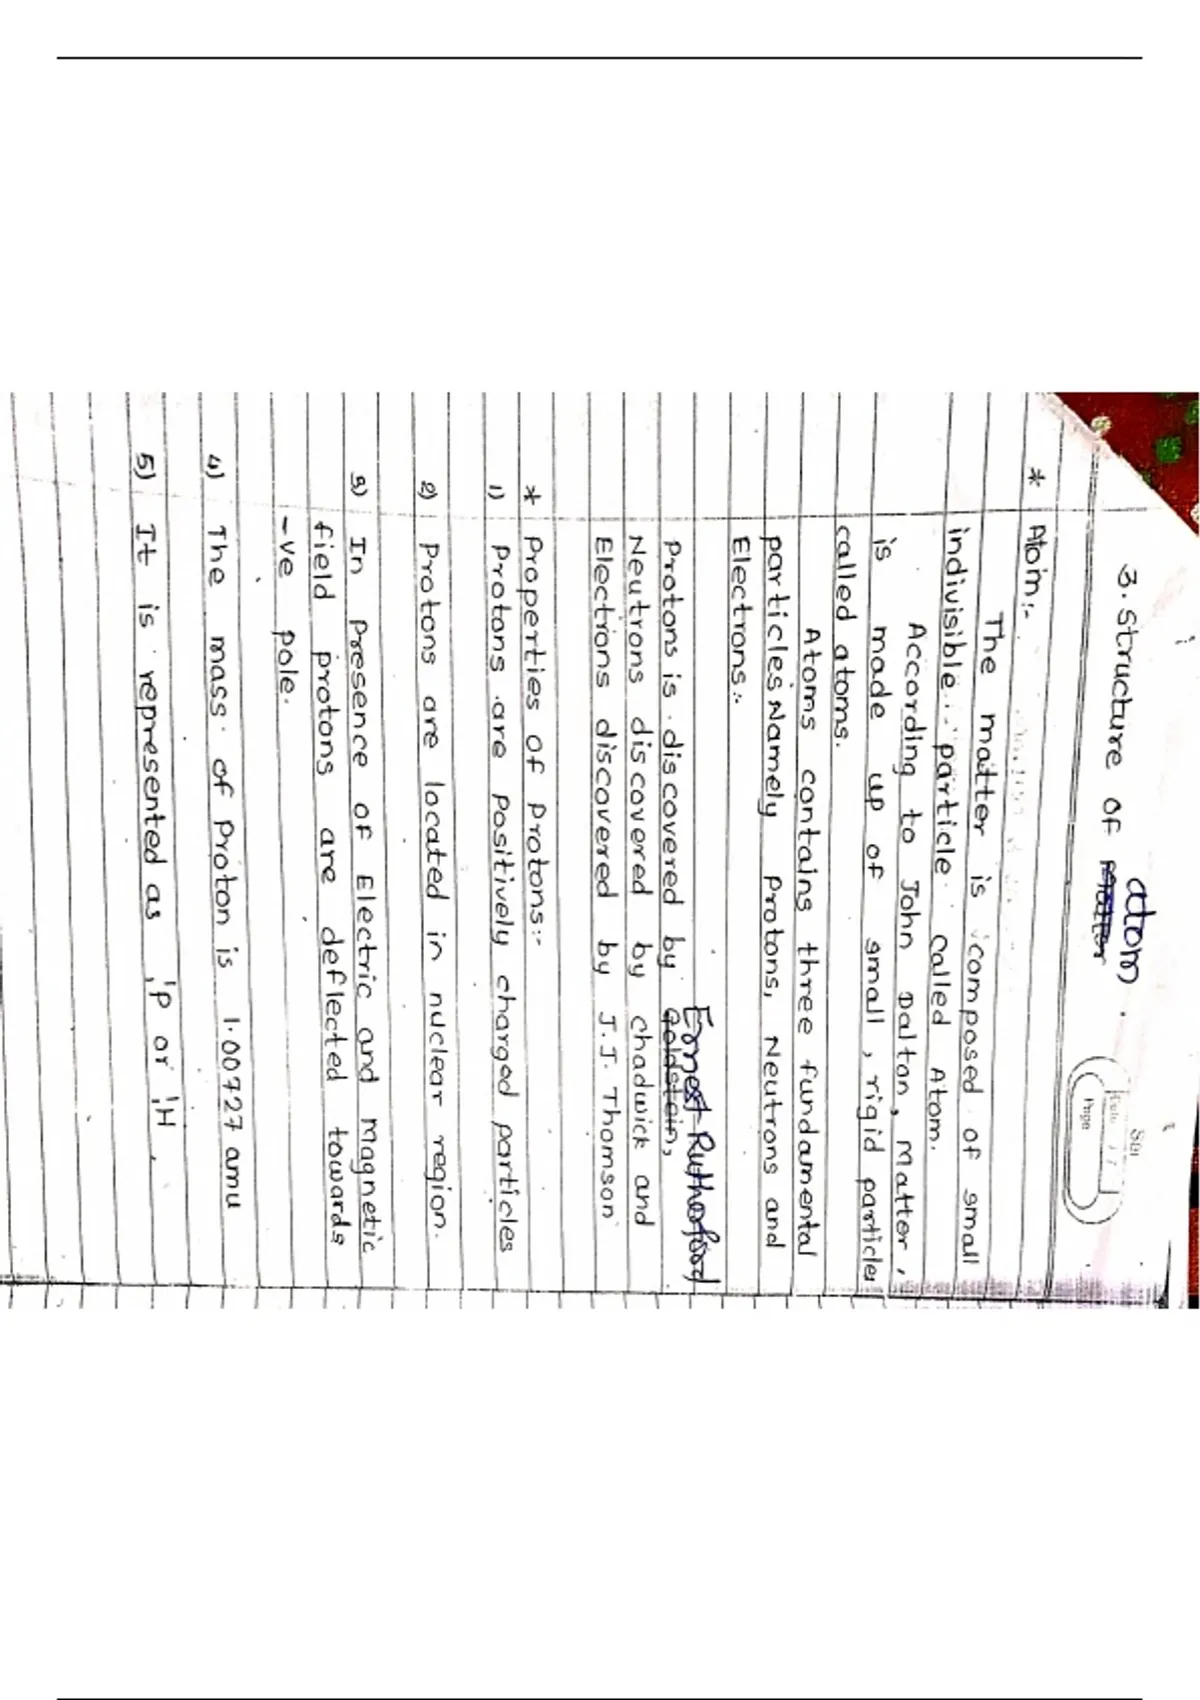 3. Structure of Matter atom.
Page
* Atom:-
The matter is composed of small
indivisible particle called Atom.
According to John Dalton, Matter,
is made up of small, rigid particles
called atoms.
Atoms contains three fundamental
particles Namely protons, Neutrons and
Electrons:-
Ernest Rutherfood
Protons is discovered by Goldstein,
Neutrons discovered by chadwick and
Electrons discovered by J.J. Thomson
* Properties of Protons:-
1) Protons are Positively charged particles
2) Protons are located in nuclear region.
3) In presence of Electric and magnetic
field protons are deflected towards
-ve pole.
4) The mass of Proton is 1.00727 amu
5) It is represented as ₁¹P or ₁¹H